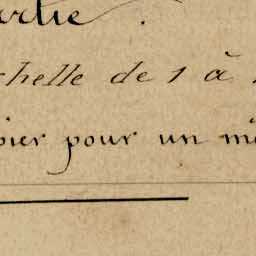 artie.
chelle de 1 à
pier pour un m